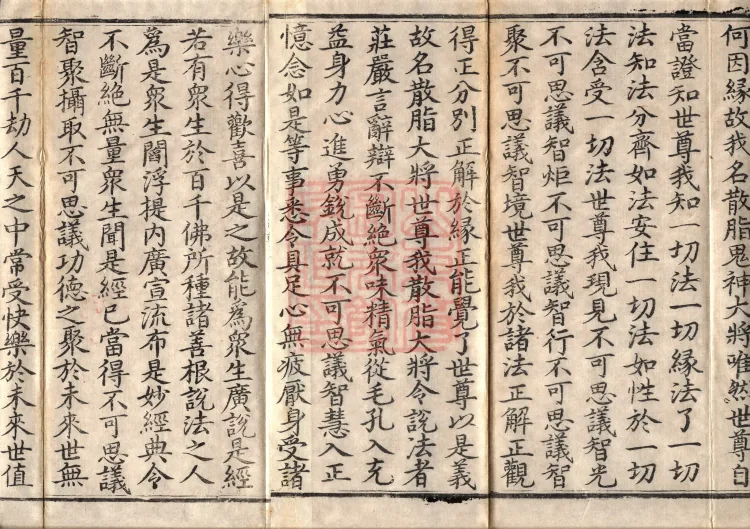 何因緣故我名散脂鬼神大將唯然世尊自
當證知世尊我知一切法一切緣法了一切
法知法分齊如法安住一切法如性於一切
法含受一切法世尊我現見不可思議智光
不可思議智炬不可思議智行不可思議智
聚不可思議智境世尊我於諸法正解正觀
得正分別正解於緣正能覺了世尊以是義
故名散脂大將世尊我散脂大將令說法者
莊嚴言辭辯不斷絕衆味精氣從毛孔入充
益身力心進勇銳成就不可思議智慧入正
憶念如是等事悉令具足心無疲厭身受諸
樂心得歡喜以是之故能為衆生廣說是經
若有衆生於百千佛所種諸善根說法之人
為是衆生閻浮提內廣宣流布是妙經典令
不斷絕無量衆生聞是經已當得不可思議
智聚攝取不可思議功德之聚於未來世無
量百千劫人天之中常受快樂於未來世值